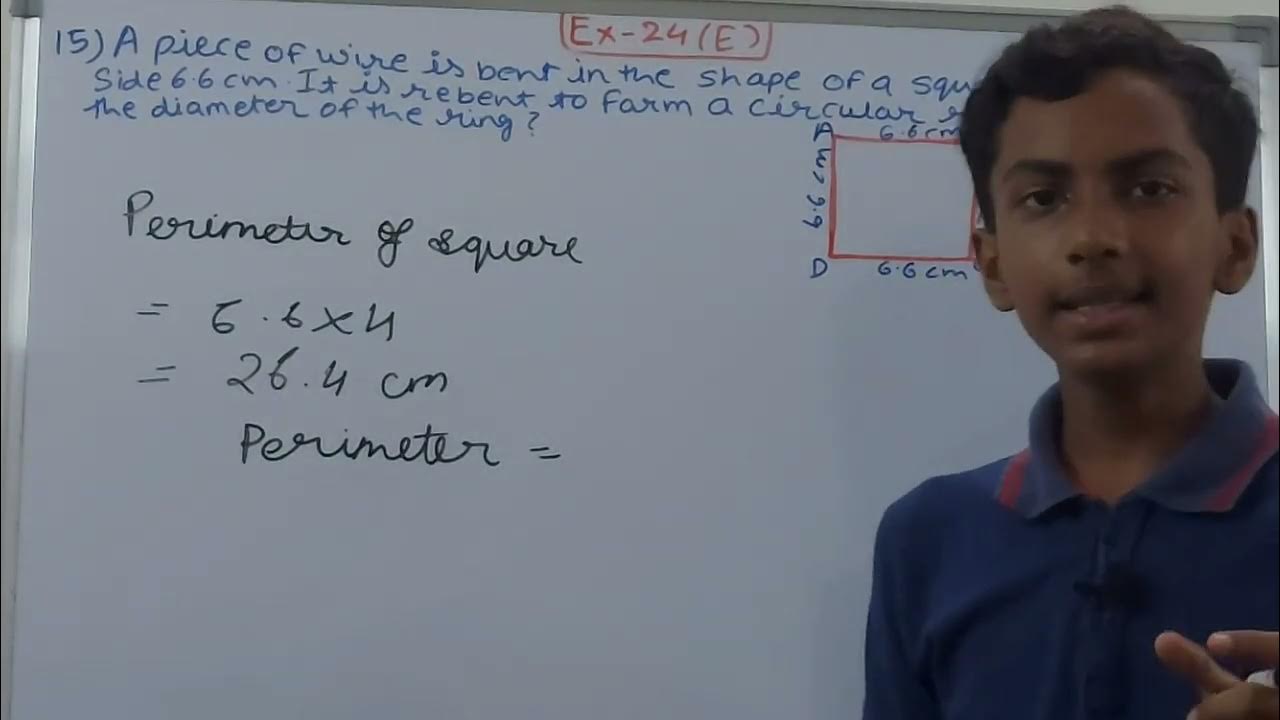 Ex-24(E)
15) A piece of wire is bent in the shape of a
Side 6.6 cm. It is rebent to farm a circular
the diameter of the ring?
A 6.6cm
6.6 cm
D 6.6 cm
Perimeter of square
= 6.6 x 4
= 26.4 cm
Perimeter =